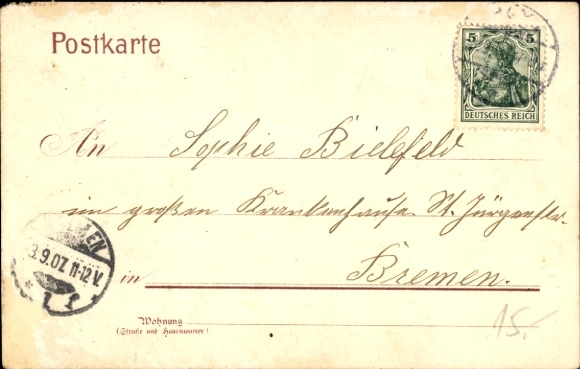 Postkarte
5 5
DEUTSCHES REICH
An Sophie Bielefeld
im großen Krankenhause St. Jürgenstr.
3.9.07. 11-12 V.
in Bremen.
Wohnung
(Straße und Hausnummer)
15.-